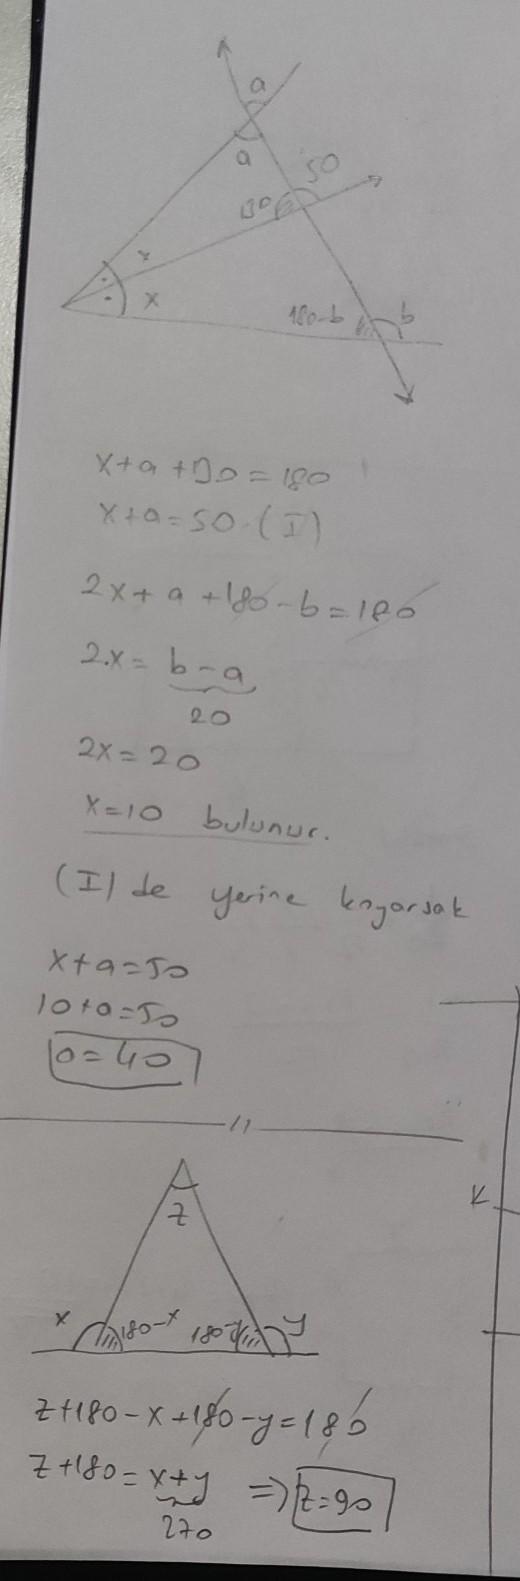 a
a
50
130
x
x
180-b
b
x+a+130=180
x+a=50.(I)
2x+a+180-b=180
2.x=b-a
20
2x=20
x=10 bulunur.
(I) de yerine koyarsak
x+a=50
10+a=50
a=40
z
K
x
180-x
180-y
y
z+180-x+180-y=180
z+180=x+y ⇒ z=90
270